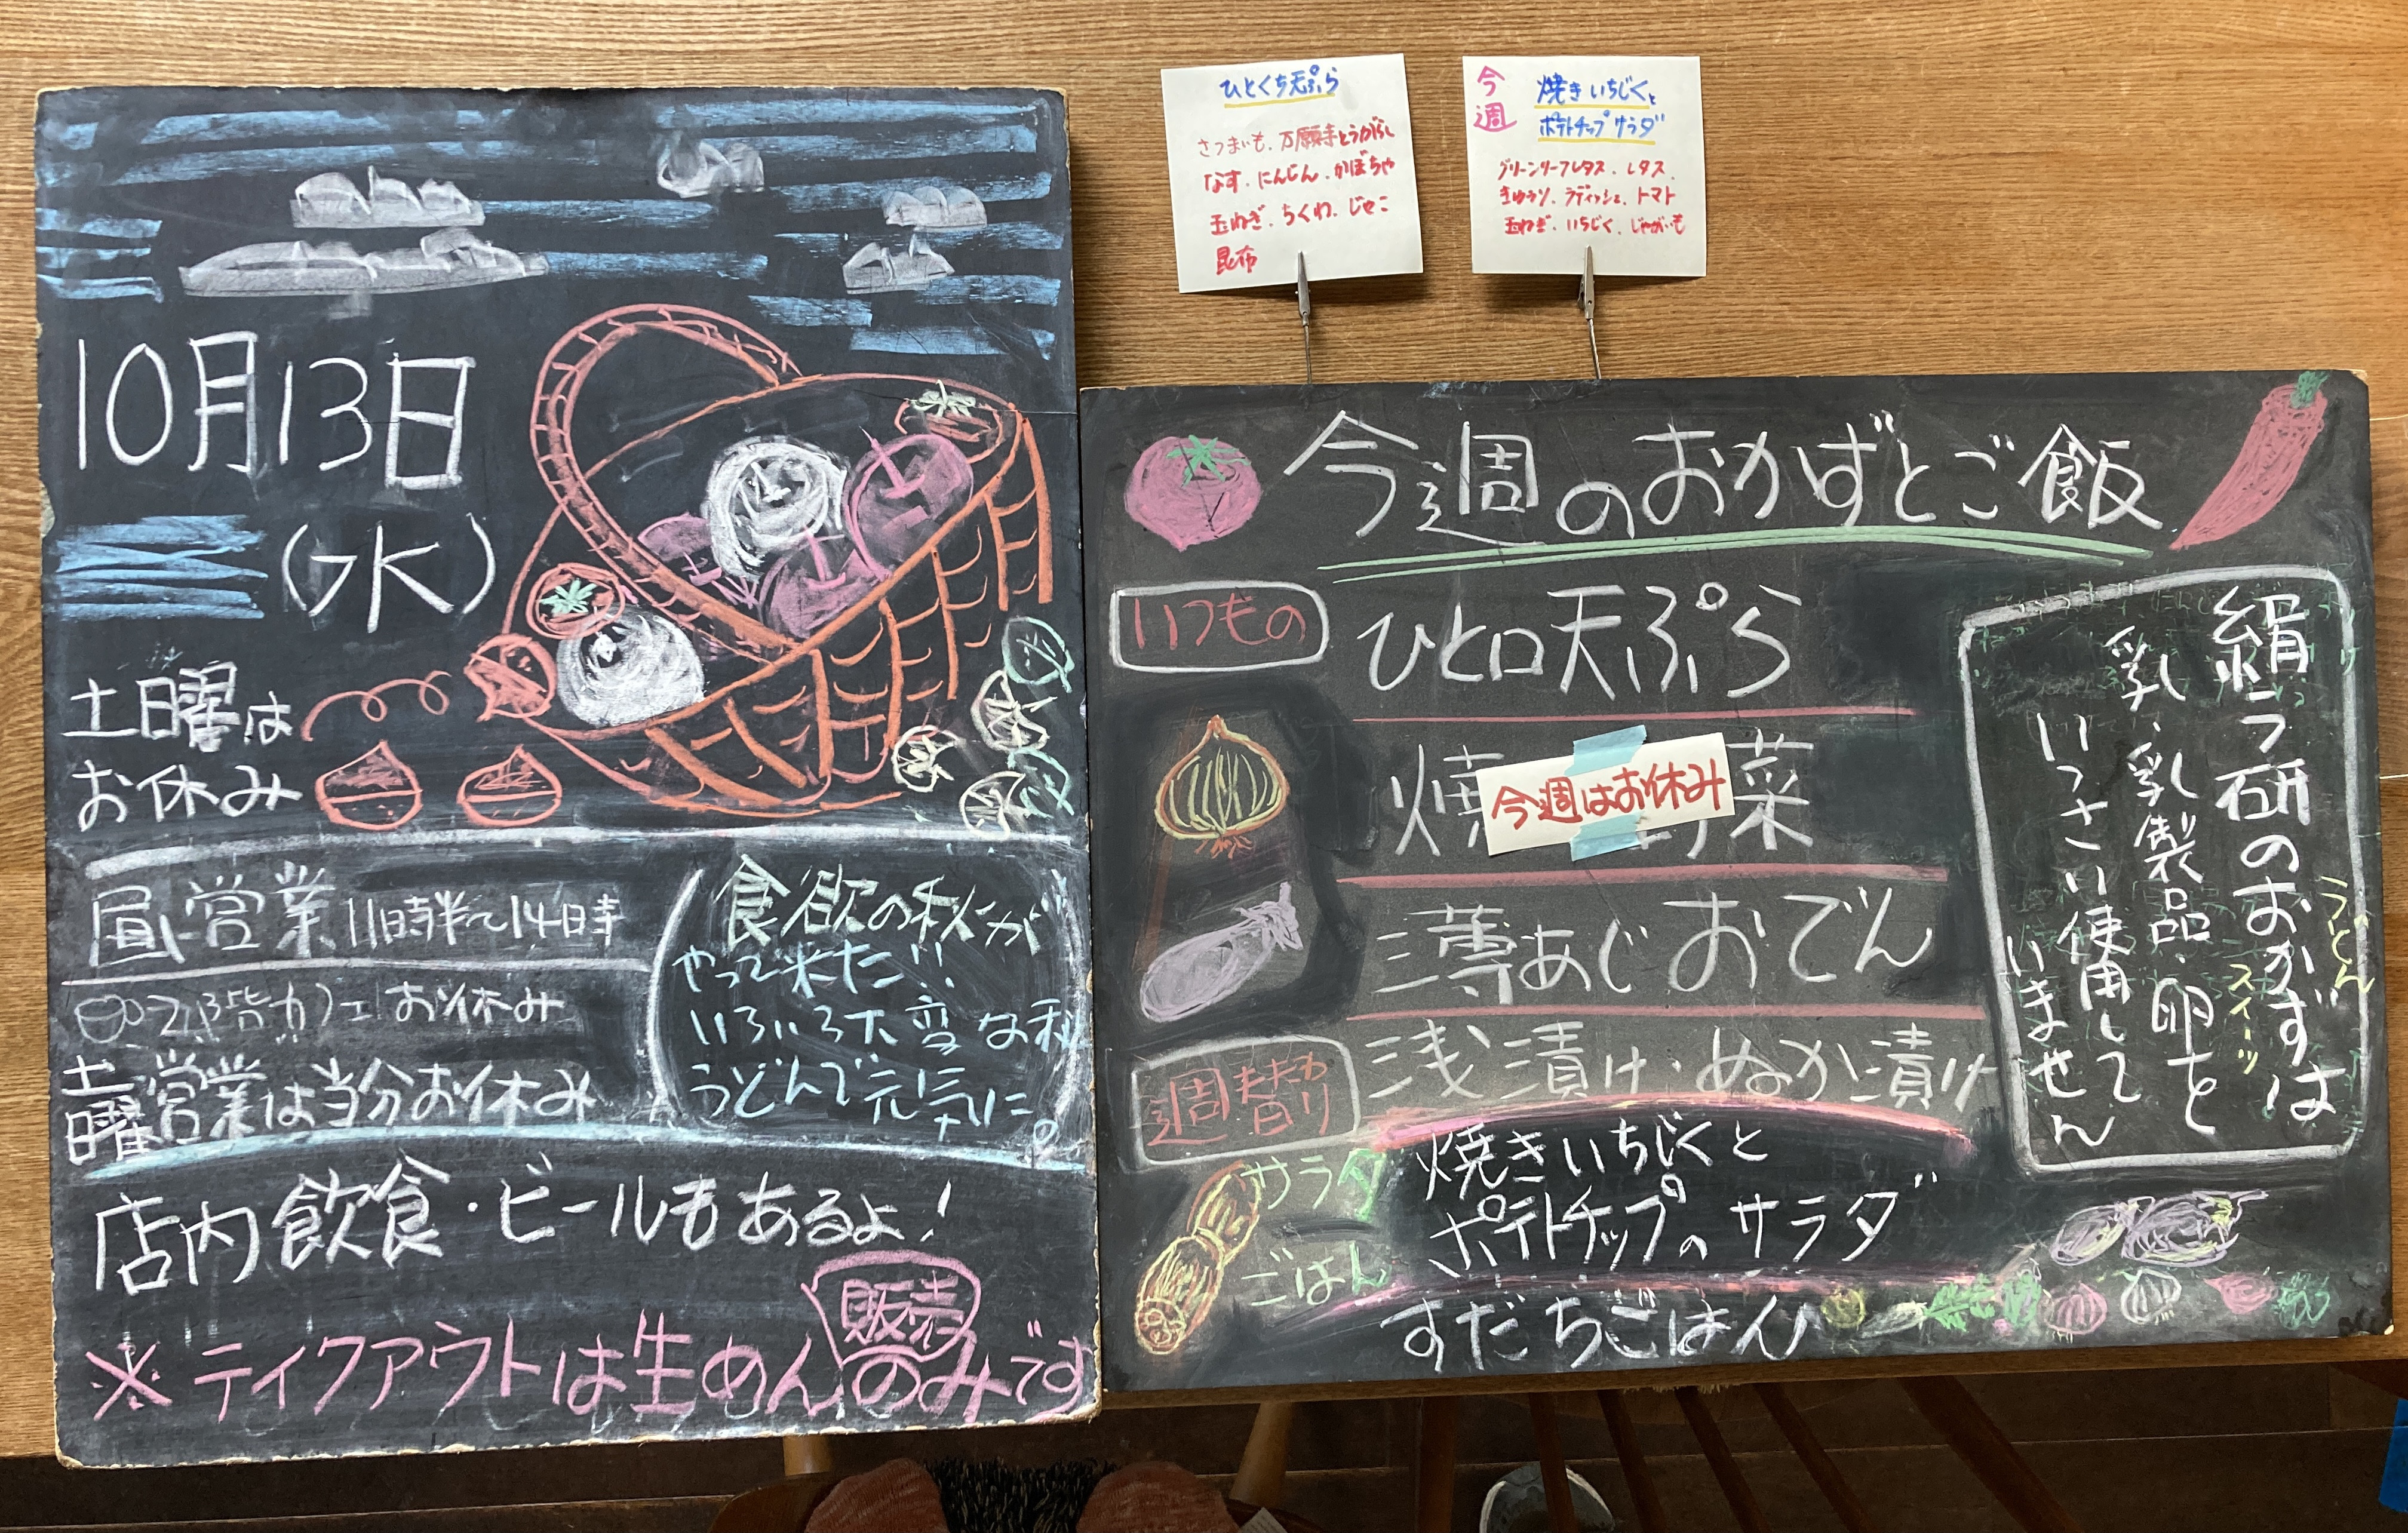 10月13日
(水)
土日曜は
お休み
昼営業 11時半〜14時
2階カフェ お休み
土曜営業は当分お休み
食欲の秋が
やって来た!!
いろいろ大変な秋
うどんで元気に。
店内飲食・ビールもあるよ!
販売
※テイクアウトは生めんのみです
ひとくち天ぷら
さつまいも、万願寺とうがらし
なす、にんじん、かぼちゃ
玉ねぎ、ちくわ、じゃこ
昆布
今週
焼きいちじくと
ポテトチップサラダ
グリーンリーフレタス、レタス、
きゅうり、ラディッシュ、トマト
玉ねぎ、いちじく、じゃがいも
今週のおかずとご飯
いつもの
ひと口天ぷら
焼 菜
今週はお休み
薄あじおでん
浅漬け・ぬか漬け
週替り
サラダ
焼きいちじくと
ポテトチップのサラダ
ごはん
すだちごはん
絹ラ研のおかずは
うどん
スイーツ
乳・乳製品・卵を
いっさい使用して
いません